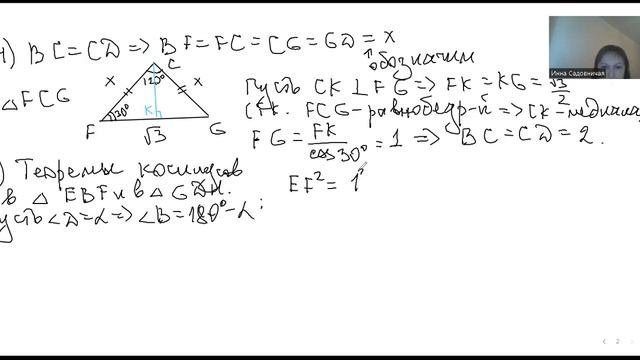 ) BC=CD => BF=FC=CG=GD=x
обозначим
C
120°
x
x
△FCG
K
30°
F
G
√3
Пусть CK⊥FG => FK=KG=√3/2
(т.к. FCG-равнобедр-й => CK-медиана
FG=FK/cos30°=1 => BC=CD=2.
) Теоремы косинусов
в △EBF и в △GDH.
усть ∠D=α => ∠B=180°-α:
EF²= 1²
Инна Садовничая
2